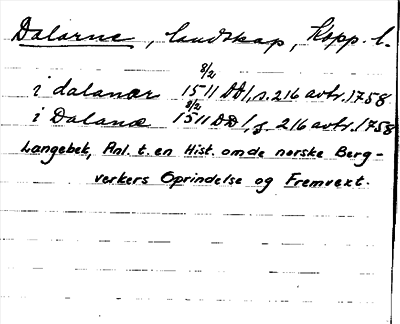 Dalarne, landskap, Kopp. l.
8/2
i dalanær 1511 DD 1, s. 216 avtr. 1758
8/2
i Dalanæ 1511 DD 1, s. 216 avtr. 1758
Langebek, Anl. t. en Hist. om de norske Berg-
verkers Oprindelse og Fremvext.